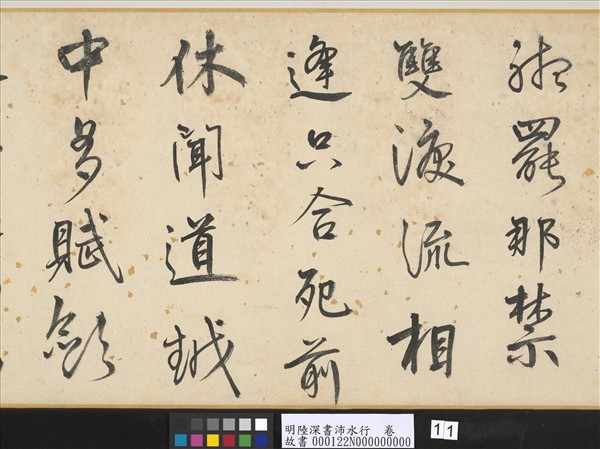 罷那禁
雙淚流相
逢只合死前
休聞道越
中多賦斂
明陸深書沛水行　卷
故書 000122N000000000
11